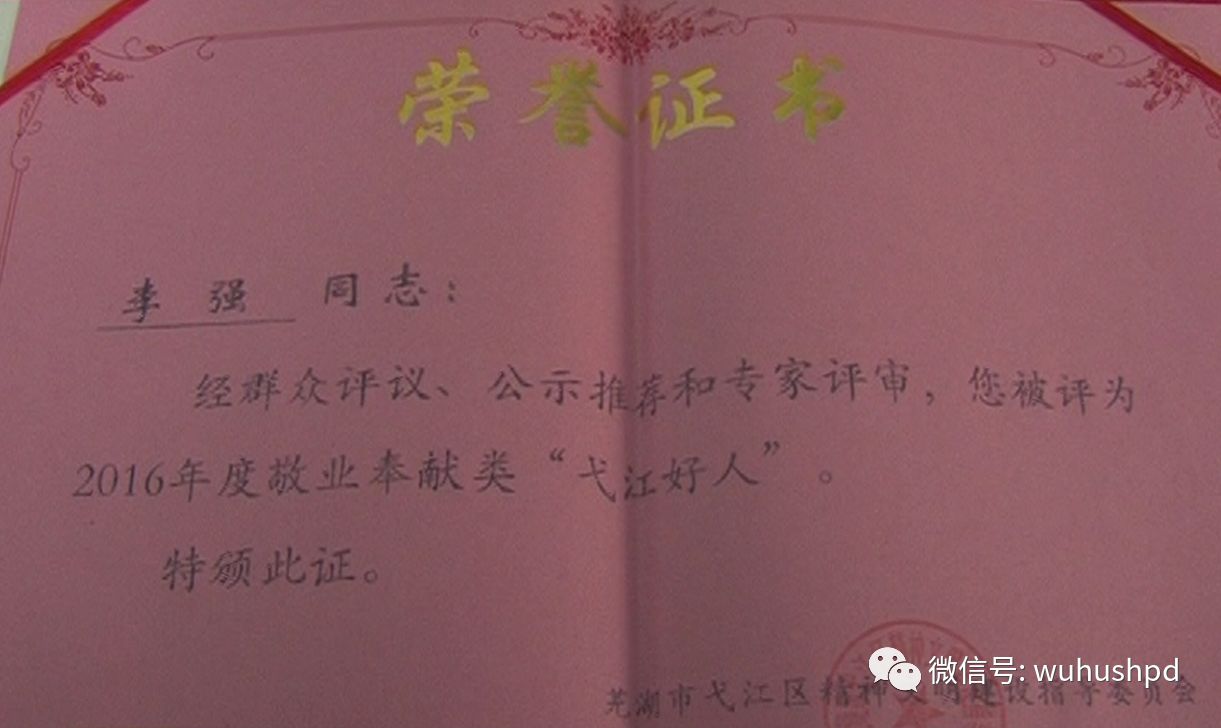 荣誉证书
李强 同志：
经群众评议、公示推荐和专家评审，您被评为
2016年度敬业奉献类“弋江好人”。
特颁此证。
微信号: wuhushpd
芜湖市弋江区精神文明建设指导委员会